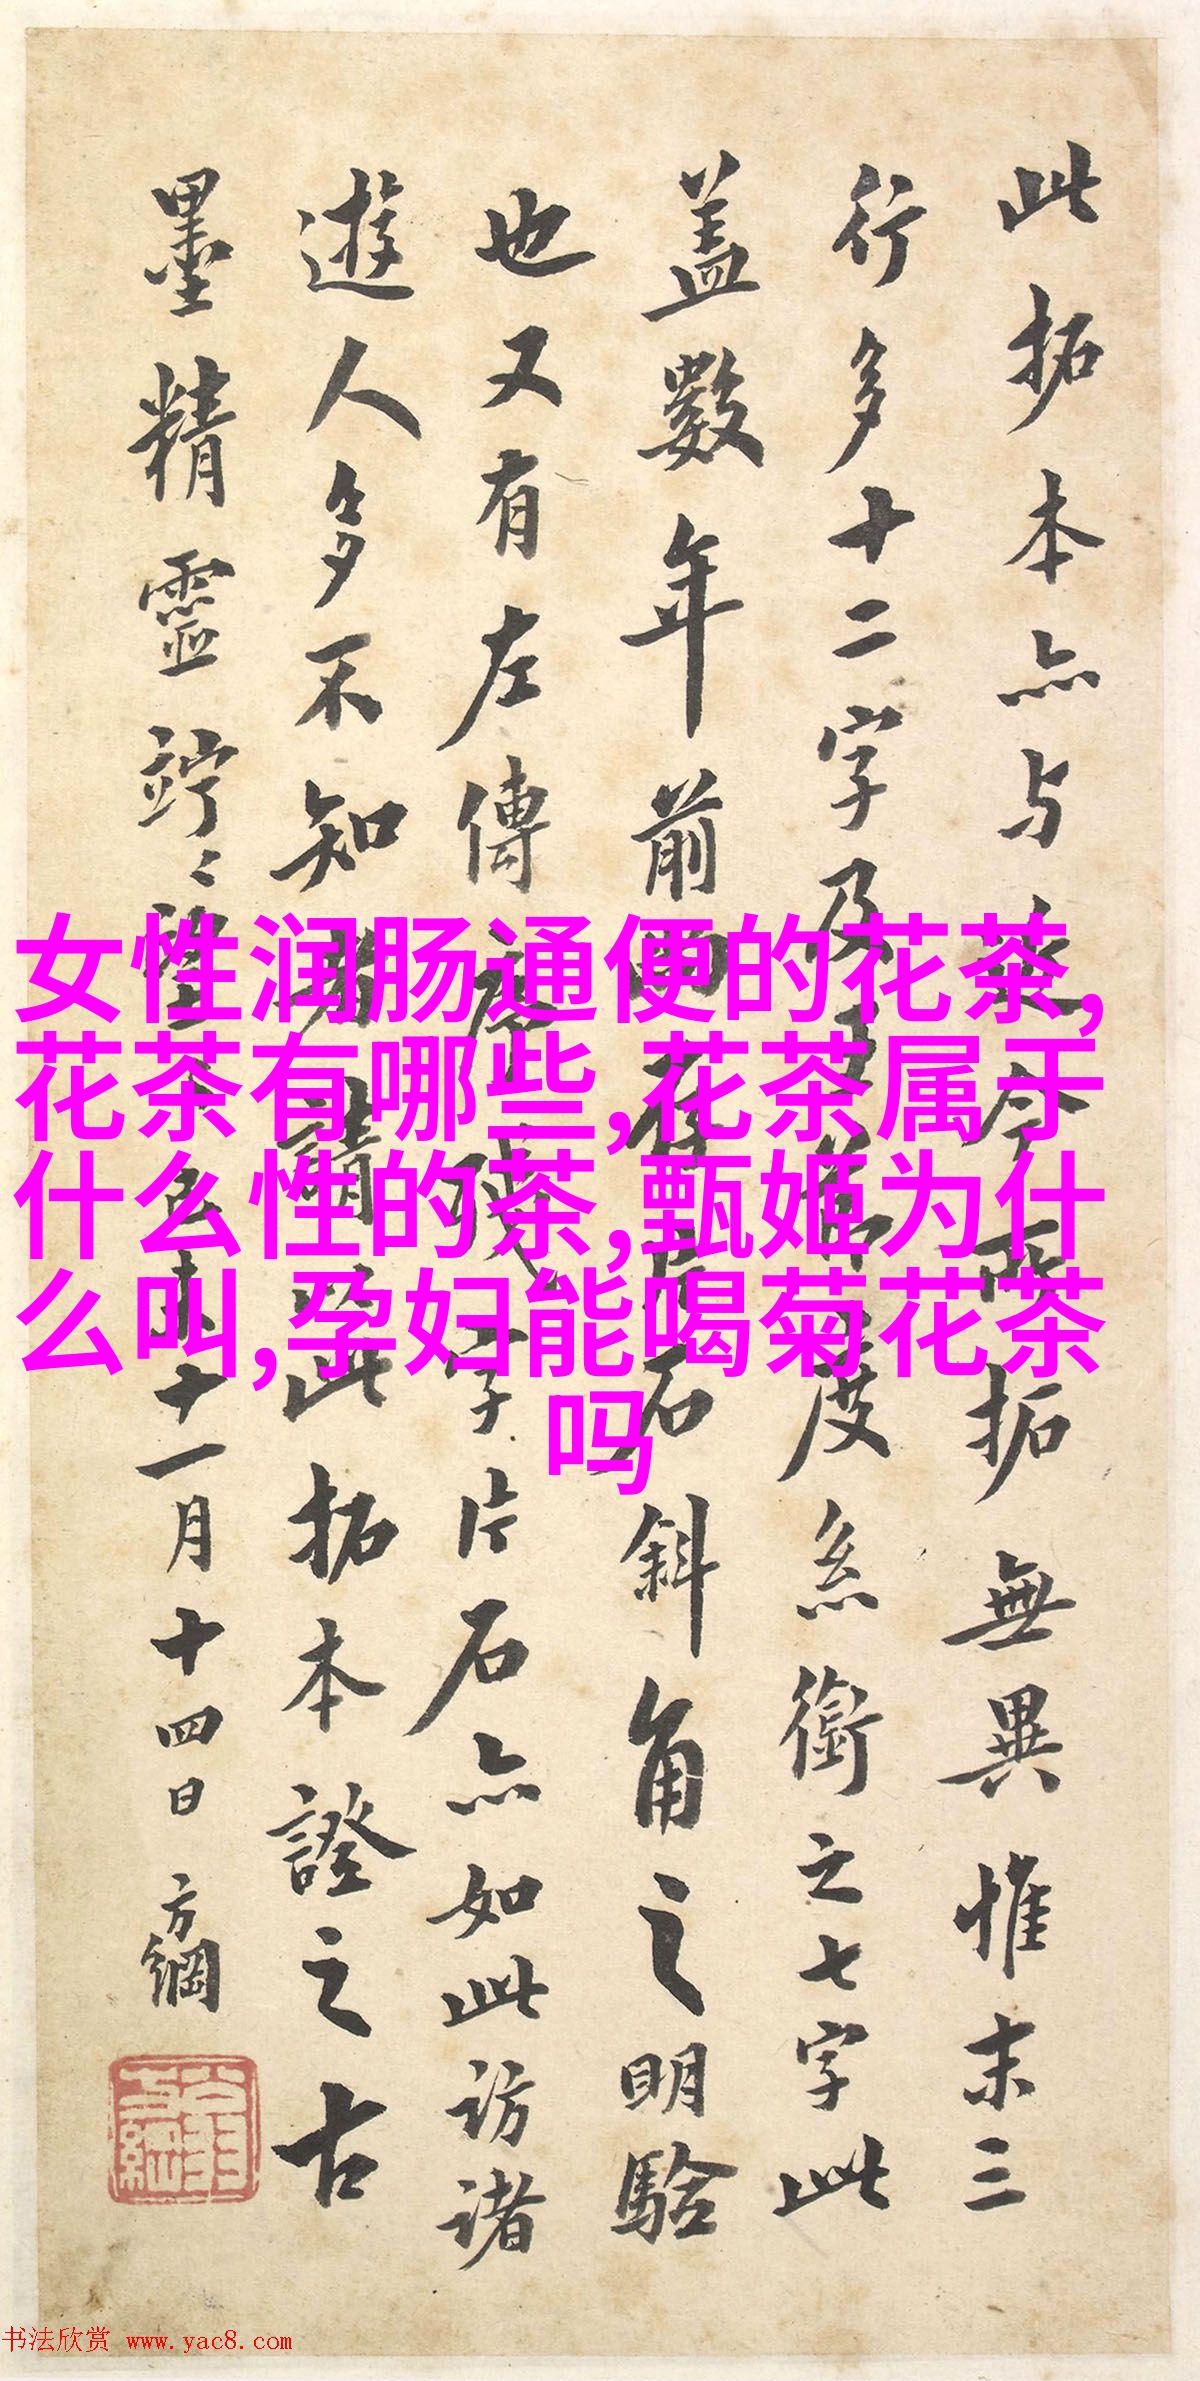 此拓本亦与
今所拓無異惟末三
行多十二字及
度絲銜之七字此
蓋數年前
石斜角之明驗
也又有左傳
字片石亦如此訪諸
遊人多不知
此拓本證之古
墨精靈
十一月十四日方綱
女性润肠通便的花茶,
花茶有哪些,花茶属于
什么性的茶,甄姬为什
么叫,孕妇能喝菊花茶
吗
书法欣赏 www.yac8.com